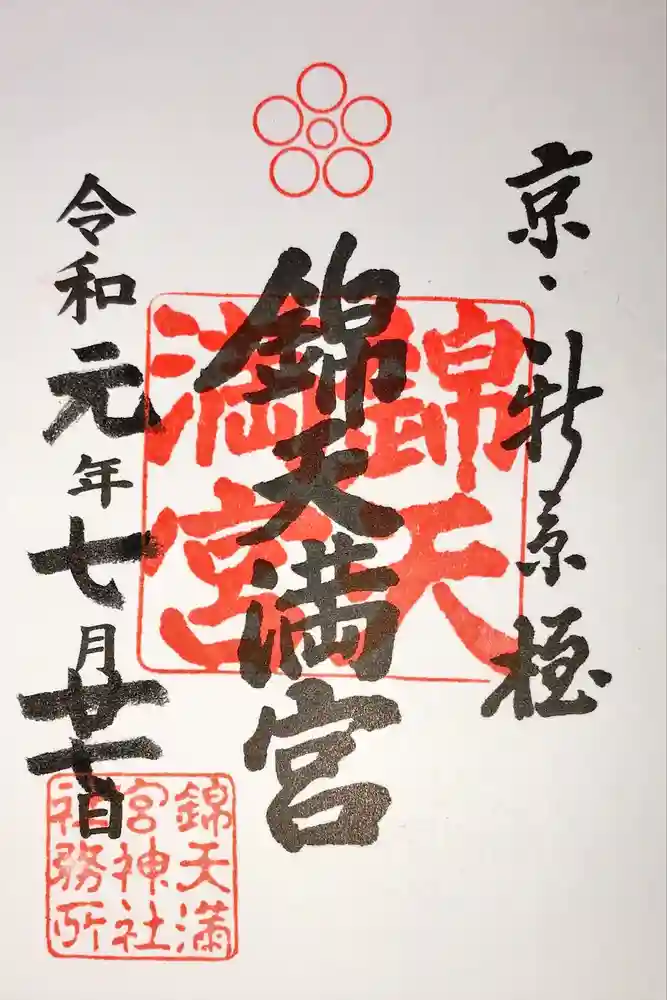 京・新京極
錦天満宮
錦天
満宮
令和元年七月廿日
錦天満
宮神社
社務所